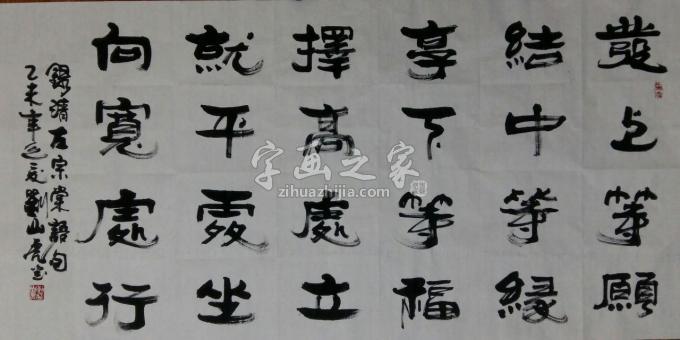 發上等願
結中等緣
享下等福
擇高處立
就平處坐
向寬處行
錄清左宗棠語句
乙未年
字画之家
zihuazhijia.com